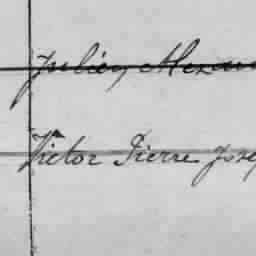 Julien Alexan
Victor Pierre Jose